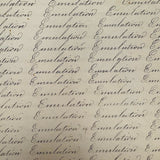 Emulation Emulation Emulation
Emulation Emulation Emulation
Emulation Emulation Emulation
Emulation Emulation Emulation
Emulation Emulation Emulation
Emulation Emulation Emulation
Emulation Emulation Emulation
Emulation Emulation Emulation
Emulation Emulation Emulation
Emulation Emulation